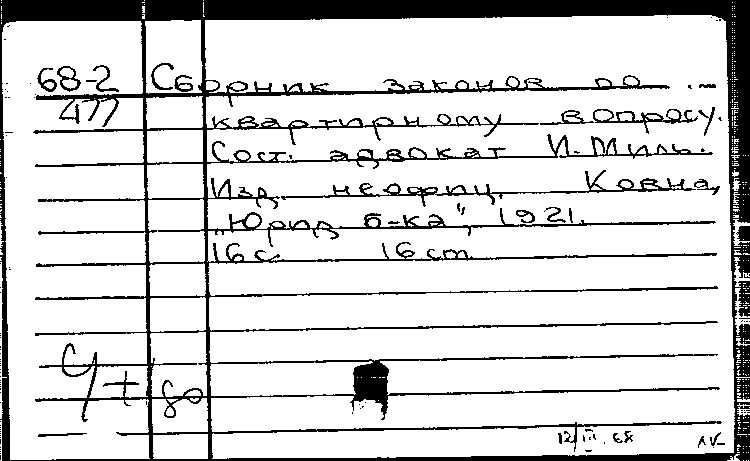 68-2 Сборник законов по
477 квартирному вопросу.
Сост. адвокат И. Миль.
Изд. неофиц. Ковна,
„Юрид. б-ка“, 1921.
16 с. 16 cm.
12/III.68